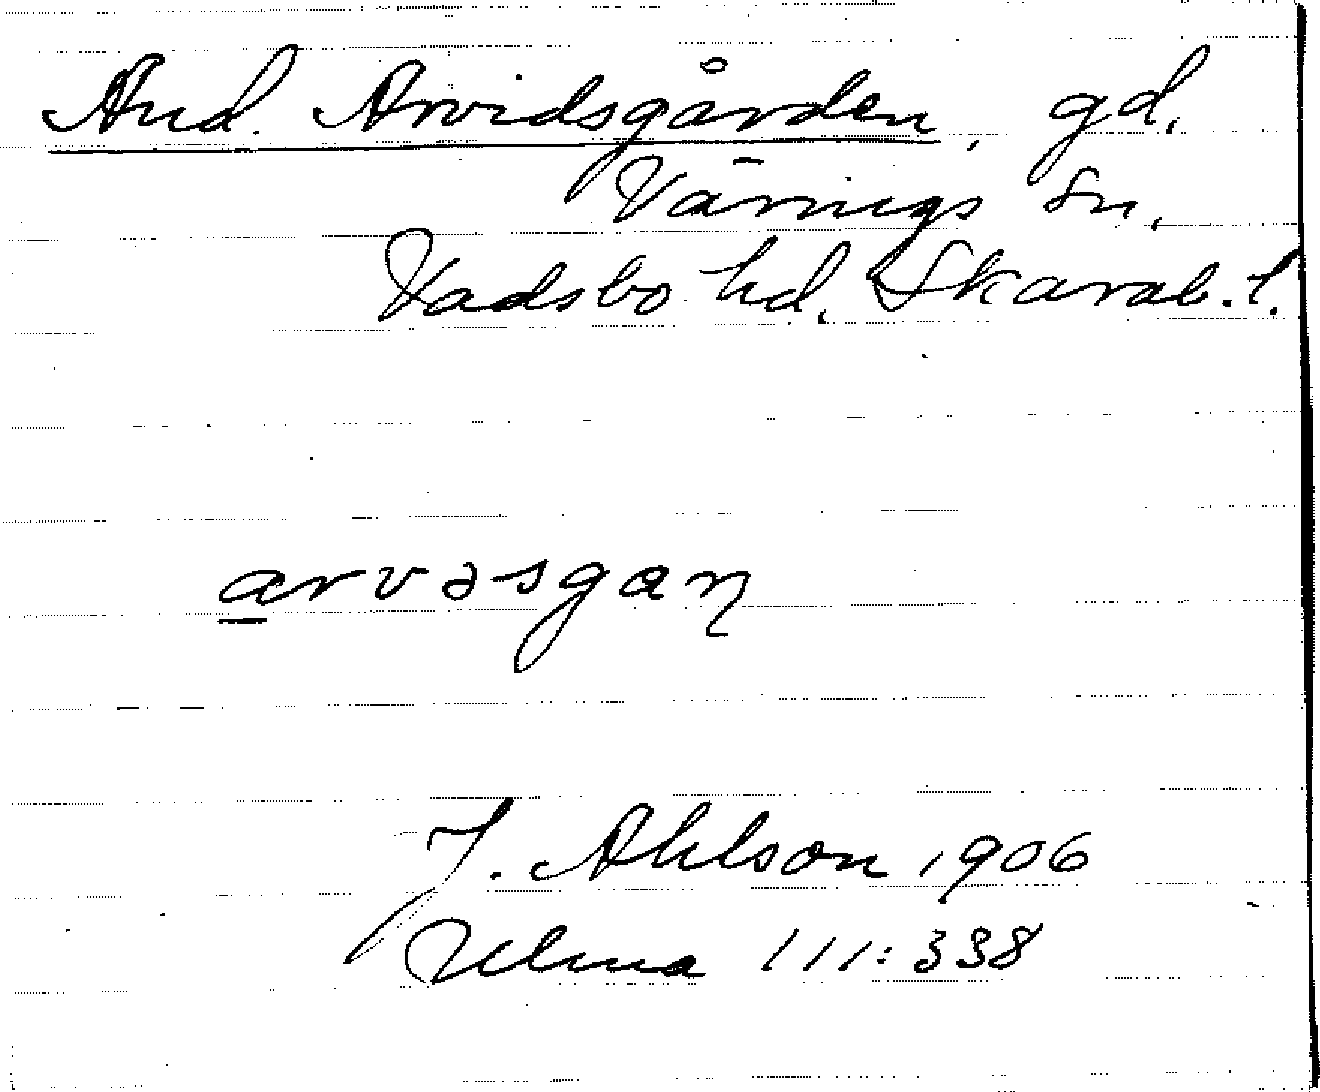 And. Arvidsgården, gd.
Värings sn,
Vadsbo hd, Skarab. l.
arvəsgaɳ
J. Ahlson 1906
Ulma 111:338